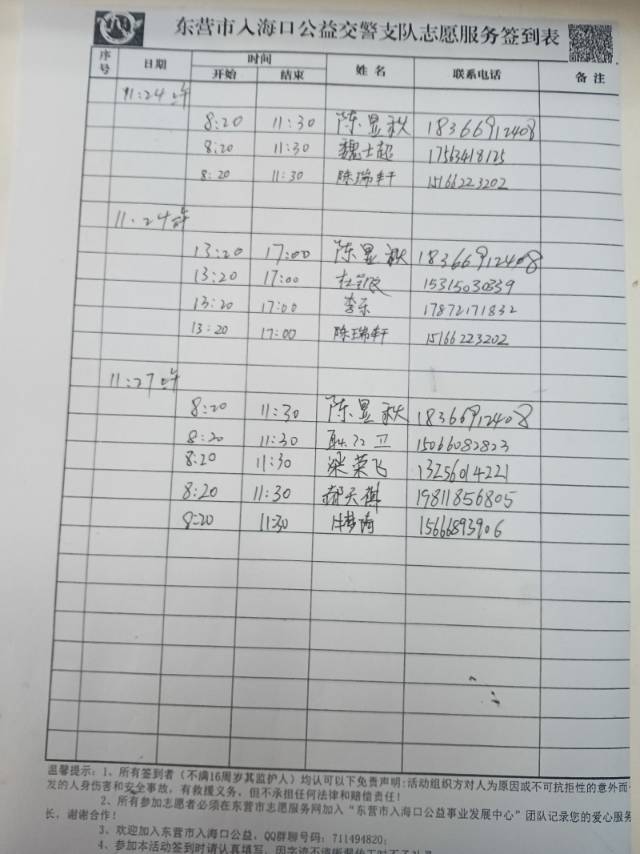 东营市入海口公益交警支队志愿服务签到表
序号 日期 时间 开始 结束 姓名 联系电话 备注
11:24
8:20 11:30 陈显秋 18366912408
8:20 11:30 魏士超 17563418125
8:20 11:30 陈瑞轩 15166223202
11.24
13:20 17:00 陈显秋 18366912408
13:20 17:00 15315030339
13:20 17:00 李乐 17872171832
13:20 17:00 陈瑞轩 15166223202
11:27
8:20 11:30 陈显秋 18366912408
8:20 11:30 15066082823
8:20 11:30 梁荣飞 13256014221
8:20 11:30 郝天祺 19811856805
8:20 11:30 15666893906
温馨提示:1、所有签到者(不满16周岁其监护人)均认可以下免责声明:活动组织方对人为原因或不可抗拒性的意外而
发的人身伤害和安全事故,有救援义务,但不承担任何法律和赔偿责任!
2、所有参加志愿者必须在东营市志愿服务网加入“东营市入海口公益事业发展中心”团队记录您的爱心服务
长,谢谢合作!
3、欢迎加入东营市入海口公益,QQ群聊号码:711494820;
4、参加本活动签到时请认真填写,因字迹不清晰